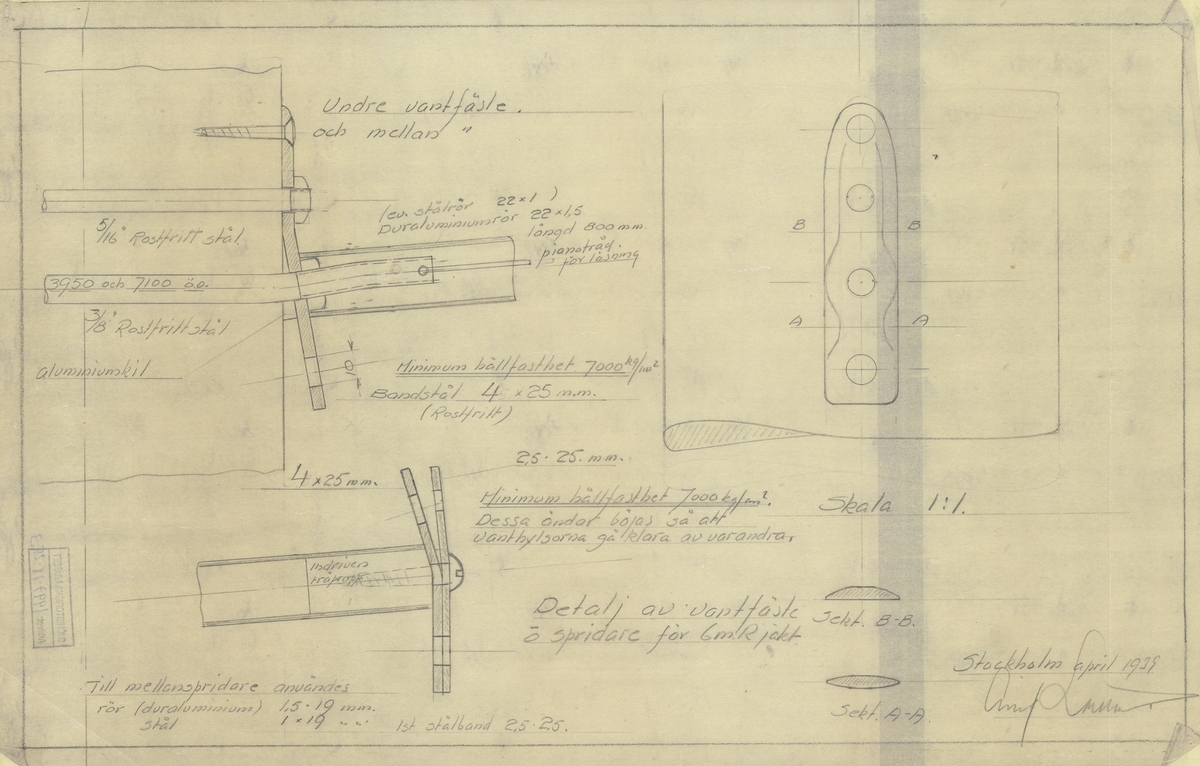 Undre vantfäste.
och mellan "
(ev. stålrör 22×1 )
Duraluminiumrör 22×1,5
längd 800 mm.
pianotråd.
för låsning
5/16" Rostfritt stål.
3950 och 7100 ö.o.
3/8" Rostfritt stål
aluminiumkil
Minimum hållfasthet 7000 kg/cm²
Bandstål 4 × 25 m.m.
(Rostfritt)
B B
A A
4 × 25 mm.
2,5 · 25. mm.
Minimum hållfasthet 7000 kg/cm².
Dessa ändar böjas så att
vanthylsorna gå klara av varandra.
Skala 1:1.
Indriven
träpropp
Detalj av vantfäste
o spridare för 6m.R jakt.
Sekt. B-B.
Sekt. A-A.
Till mellanspridare användes
rör (duraluminium) 1,5 · 19 mm.
stål 1 × 19 " "
1st stålband 2,5 · 25.
Stockholm april 1939